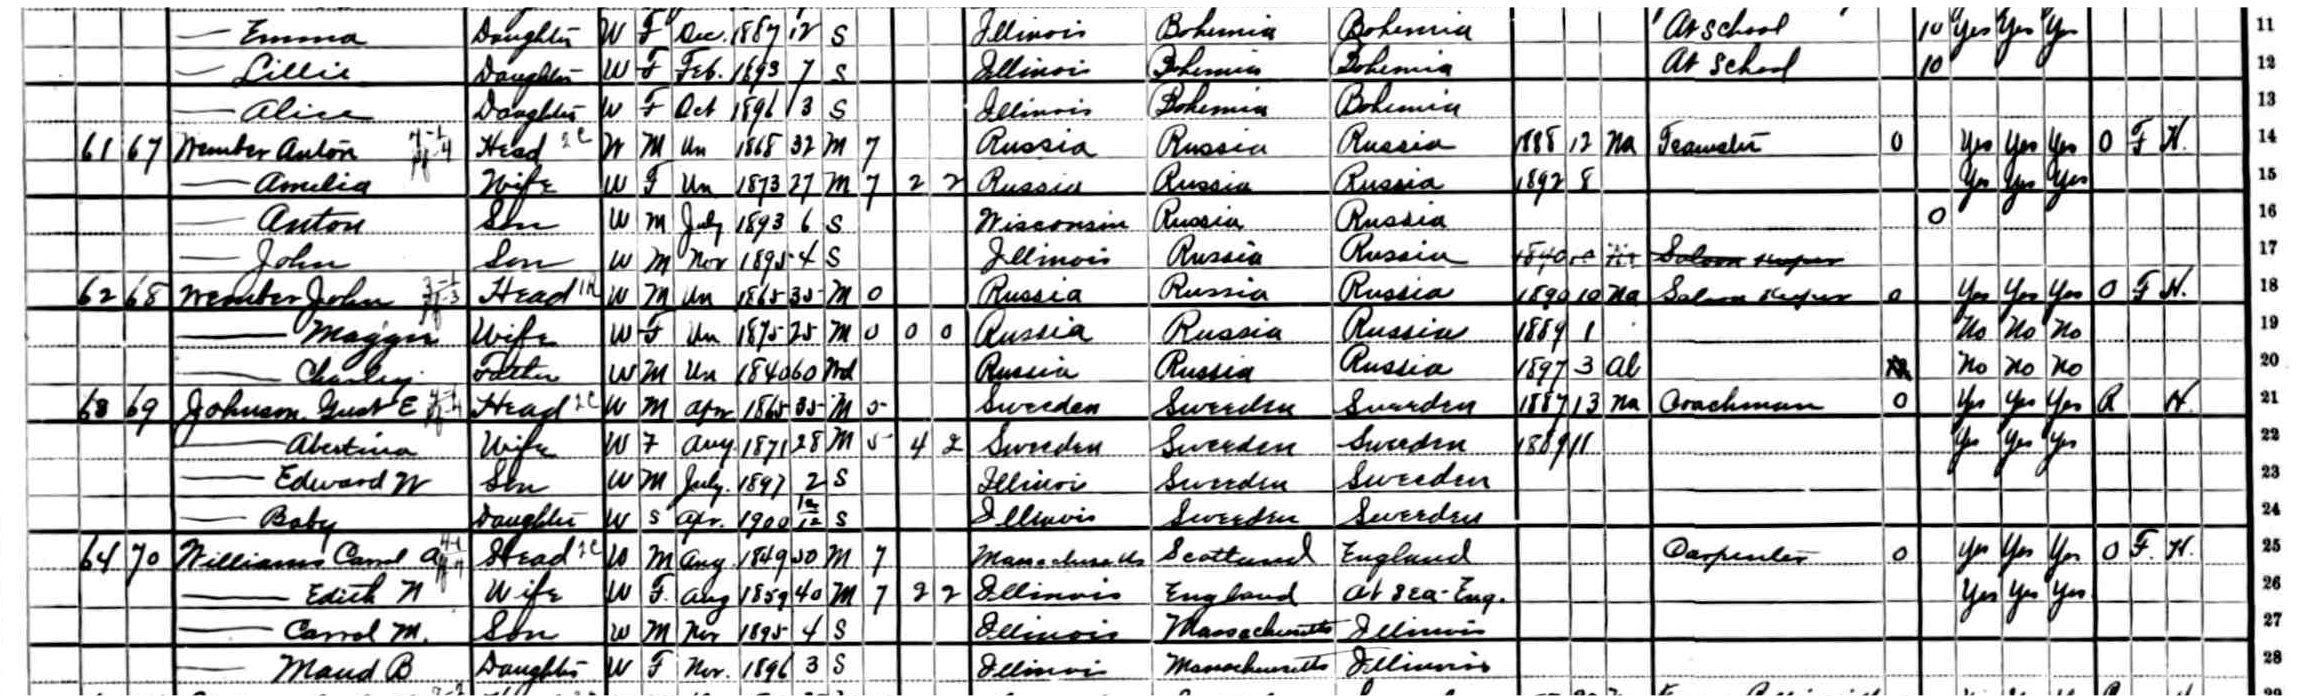 — Emma Daughter W F Dec. 1887 12 S Illinois Bohemia Bohemia At School 10 Yes Yes Yes 11
— Lillie Daughter W F Feb. 1893 7 S Illinois Bohemia Bohemia At School 10 12
— Alice Daughter W F Oct 1896 3 S Illinois Bohemia Bohemia 13
61 67 Wember Anton Head 2C W M Un 1868 32 M 7 Russia Russia Russia 1888 12 Na Teamster 0 Yes Yes Yes O F H. 14
— Amelia Wife W F Un 1873 27 M 7 2 2 Russia Russia Russia 1892 8 Yes Yes Yes 15
— Anton Son W M July 1893 6 S Wisconsin Russia Russia 0 16
— John Son W M Nov 1895 4 S Illinois Russia Russia 1840 Saloon Keeper 17
62 68 Wember John Head W M Un 1865 35 M 0 Russia Russia Russia 1890 10 Na Saloon Keeper 0 Yes Yes Yes O F H. 18
— Maggie Wife W F Un 1875 25 M 0 0 0 Russia Russia Russia 1889 1 No No No 19
— Charley Father W M Un 1840 60 Wd Russia Russia Russia 1897 3 Al No No No 20
63 69 Johnson Gust E Head 2C W M Apr 1865 35 M 5 Sweeden Sweeden Sweeden 1887 13 Na Coachman 0 Yes Yes Yes R H. 21
— Abertina Wife W F Aug 1871 28 M 5 4 2 Sweeden Sweeden Sweeden 1889 11 Yes Yes Yes 22
— Edward W Son W M July. 1897 2 S Illinois Sweeden Sweeden 23
— Baby Daughter W S Apr. 1900 /12 S Illinois Sweeden Sweeden 24
64 70 Williams Carrol A Head 2C W M Aug 1849 50 M 7 Massachusetts Scotland England Carpenter 0 Yes Yes Yes O F. H. 25
— Edith N Wife W F. Aug 1859 40 M 7 2 2 Illinois England At Sea-Eng. Yes Yes Yes 26
— Carrol M. Son W M Nov 1895 4 S Illinois Massachusetts Illinois 27
— Maud B Daughter W F Nov. 1896 3 S Illinois Massachusetts Illinois 28